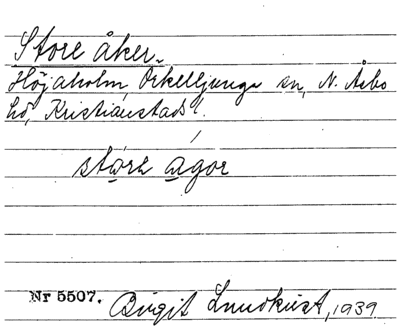 Store åker.
Höjaholm, Örkelljunga sn, N. Åsbo
hd, Kristianstads l.
störe agor
Nr 5507. Birgit Lundkvist, 1939